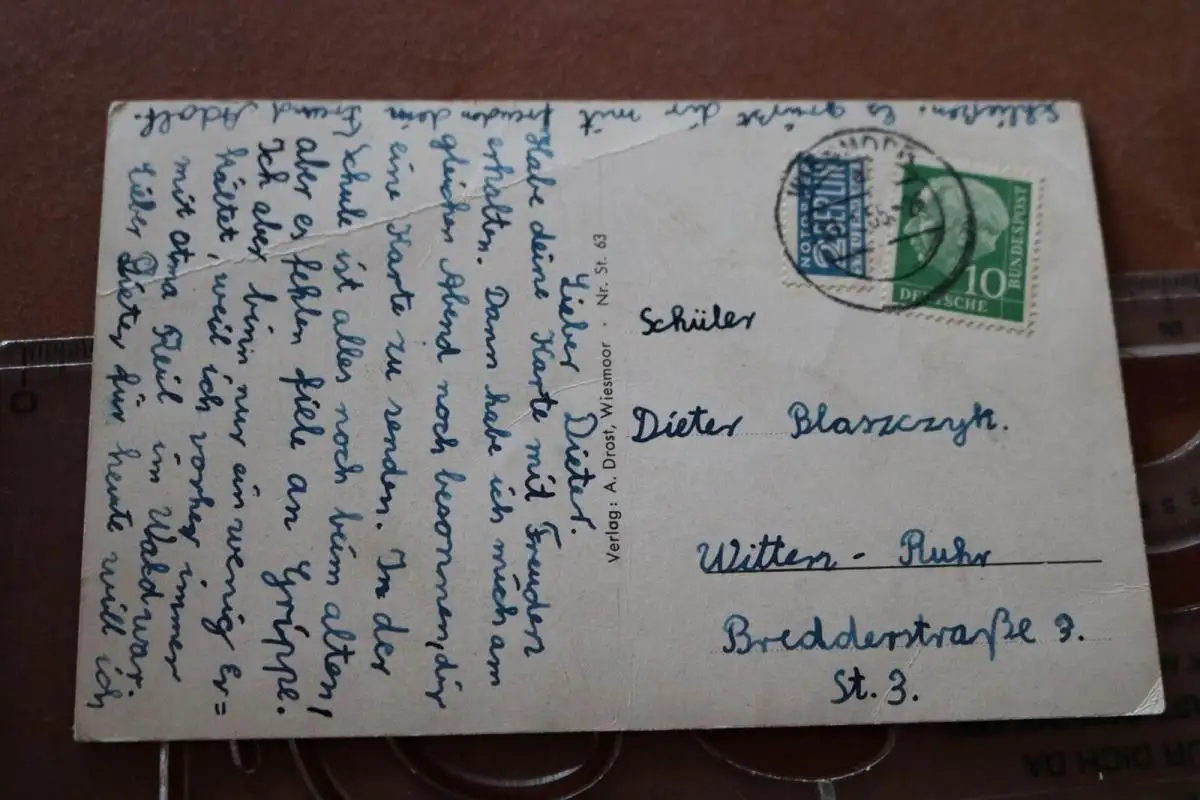 Lieber Dieter.
Habe deine Karte mit Freuden
erhalten. Dann habe ich mich am
gleichen Abend noch besonnen, dir
eine Karte zu senden. In der
Schule ist alles noch beim alten!
aber es fehlen fiele an Grippe.
Ich aber binn nur ein wenig Er=
kältet, weil ich vorher immer
mit Keil im Wald war.
Lieber Dieter für heute will ich
schließen. Es grüßt dir mit freuden dein
Freund Adolf.
Verlag: A. Drost, Wiesmoor · Nr. St. 63
NOTOPFER
2 BERLIN
STEUERMARKE
10
DEUTSCHE
BUNDESPOST
Schüler
Dieter Blaszczyk.
Witten - Ruhr
Bredderstraße 9.
St. 3.